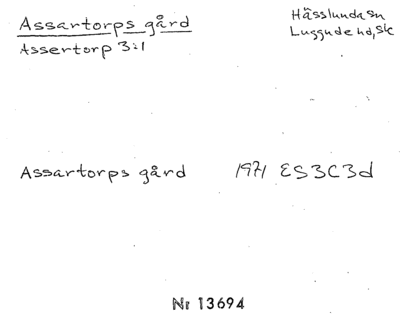 Assartorps gård
Assertorp 3:1
Hässlunda sn
Luggude hd, Sk
Assartorps gård 1971 ES3C3d
Nr 13694